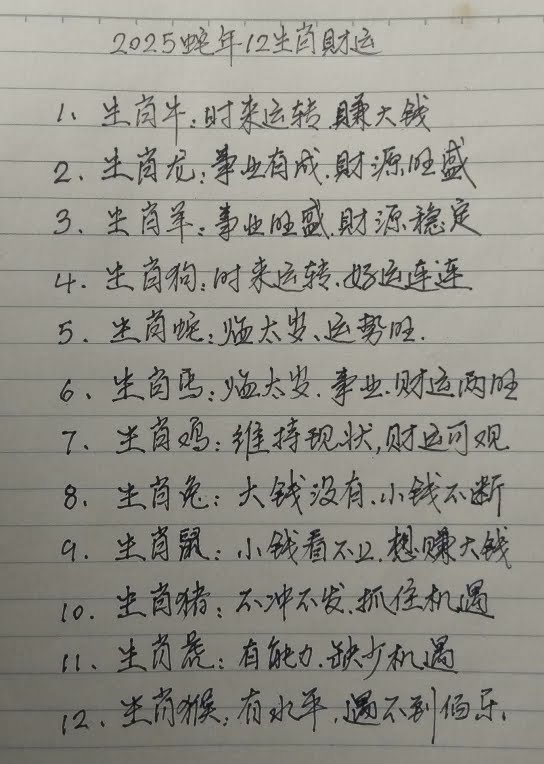 2025蛇年12生肖财运
1、生肖牛：时来运转.赚大钱
2、生肖龙：事业有成.财源旺盛
3、生肖羊：事业旺盛.财源稳定
4、生肖狗：时来运转.好运连连
5、生肖蛇：临太岁、运势旺.
6、生肖马：临太岁.事业.财运两旺
7、生肖鸡：维持现状,财运可观
8、生肖兔：大钱没有.小钱不断
9、生肖鼠：小钱看不上.想赚大钱
10、生肖猪：不冲不发.抓住机遇
11、生肖虎：有能力.缺少机遇
12、生肖猴：有水平.遇不到伯乐.